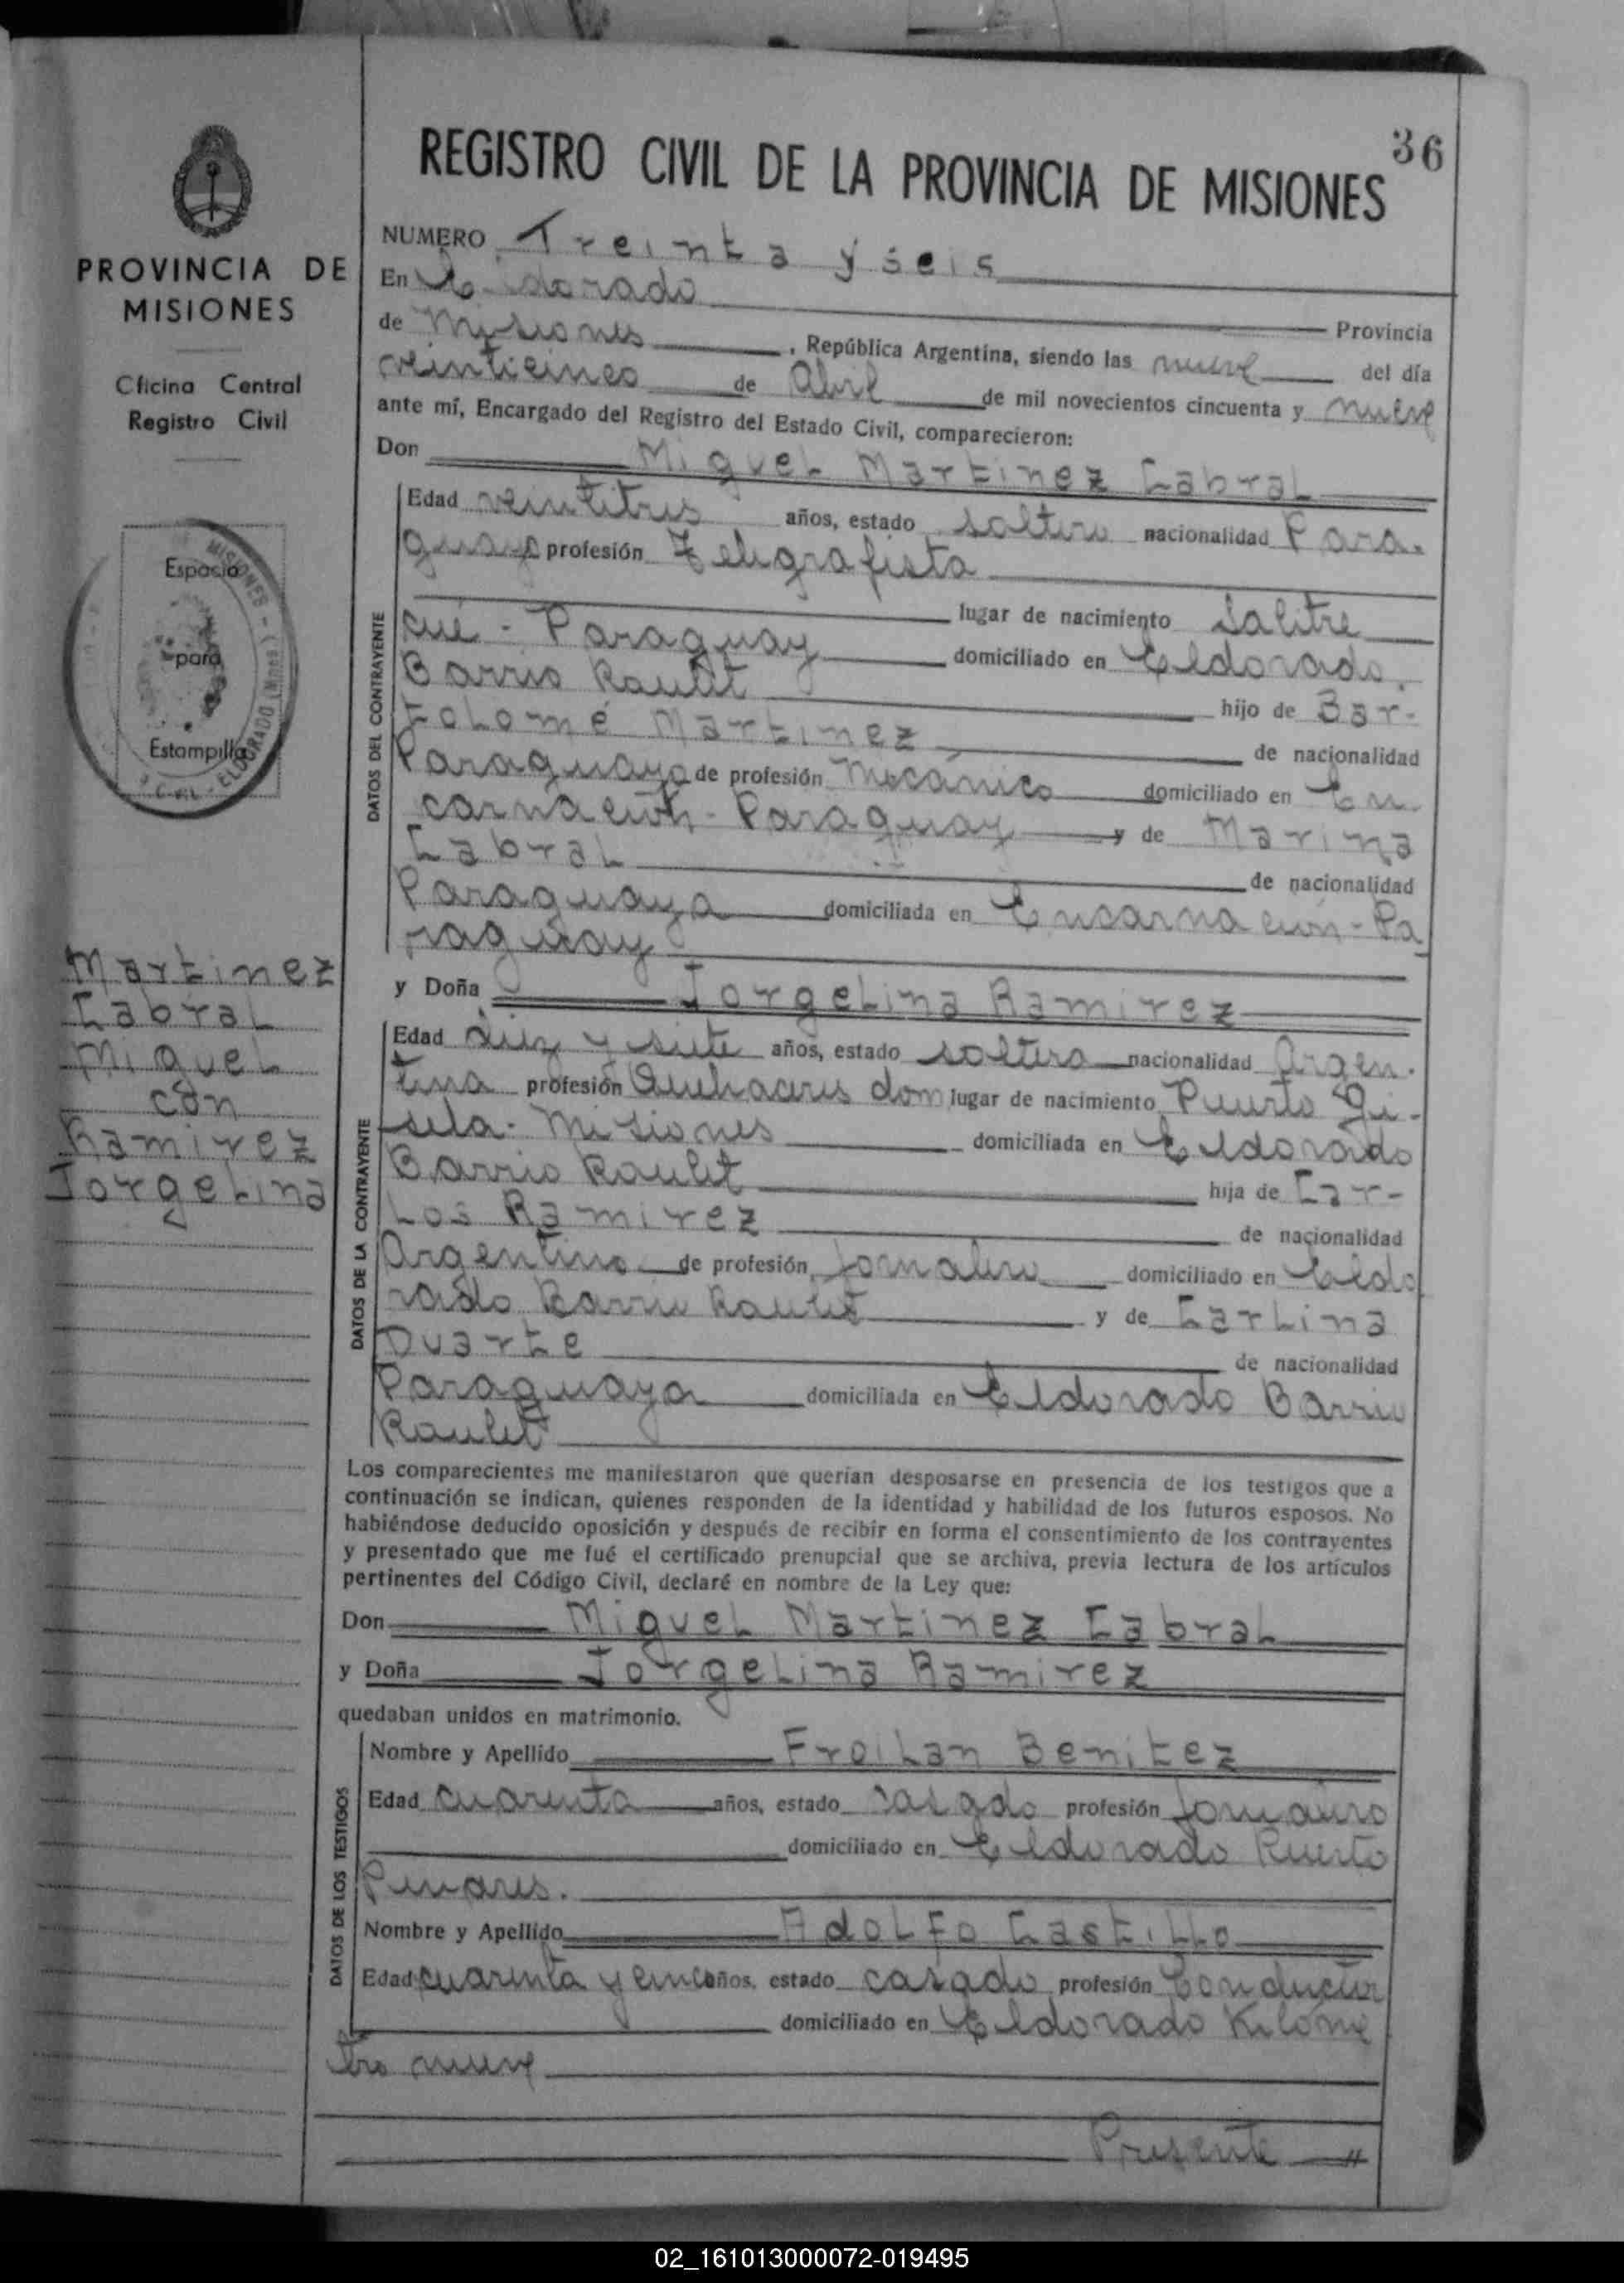 36
REGISTRO CIVIL DE LA PROVINCIA DE MISIONES
PROVINCIA DE
MISIONES
Oficina Central
Registro Civil
Espacio
para
Estampilla
MISIONES - ELDORADO (Mnes)
Martinez
Cabral
Miguel
con
Ramirez
Jorgelina
NUMERO Treinta y seis
En Eldorado Provincia
de Misiones, República Argentina, siendo las nueve del día
veinticinco de Abril de mil novecientos cincuenta y nueve
ante mí, Encargado del Registro del Estado Civil, comparecieron:
Don Miguel Martinez Cabral
DATOS DEL CONTRAYENTE
Edad veintitres años, estado soltero nacionalidad Para-
guayo profesión Telegrafista
lugar de nacimiento Salitre
cué - Paraguay domiciliado en Eldorado.
Barrio Raulit hijo de Bar-
tolomé Martinez de nacionalidad
Paraguaya de profesión Mecánico domiciliado en En-
carnación - Paraguay y de Marina
Cabral de nacionalidad
Paraguaya domiciliada en Encarnación - Pa
raguay
y Doña Jorgelina Ramirez
DATOS DE LA CONTRAYENTE
Edad diez y siete años, estado soltera nacionalidad Argen-
tina profesión Quehaceres dom lugar de nacimiento Puerto Gi-
sela - Misiones domiciliada en Eldorado
Barrio Raulit hija de Car-
los Ramirez de nacionalidad
Argentino de profesión Jornalero domiciliado en Eldo
rado Barrio Raulit y de Carlina
Duarte de nacionalidad
Paraguaya domiciliada en Eldorado Barrio
Raulit
Los comparecientes me manifestaron que querían desposarse en presencia de los testigos que a
continuación se indican, quienes responden de la identidad y habilidad de los futuros esposos. No
habiéndose deducido oposición y después de recibir en forma el consentimiento de los contrayentes
y presentado que me fué el certificado prenupcial que se archiva, previa lectura de los artículos
pertinentes del Código Civil, declaré en nombre de la Ley que:
Don Miguel Martinez Cabral
y Doña Jorgelina Ramirez
quedaban unidos en matrimonio.
DATOS DE LOS TESTIGOS
Nombre y Apellido Froilan Benitez
Edad cuarenta años, estado casado profesión Jornalero
domiciliado en Eldorado Puerto
Pinares.
Nombre y Apellido Adolfo Castillo
Edad cuarenta y cinco años, estado casado profesión Conductor
domiciliado en Eldorado Kilóme
tro nueve
Presente //
02_161013000072-019495